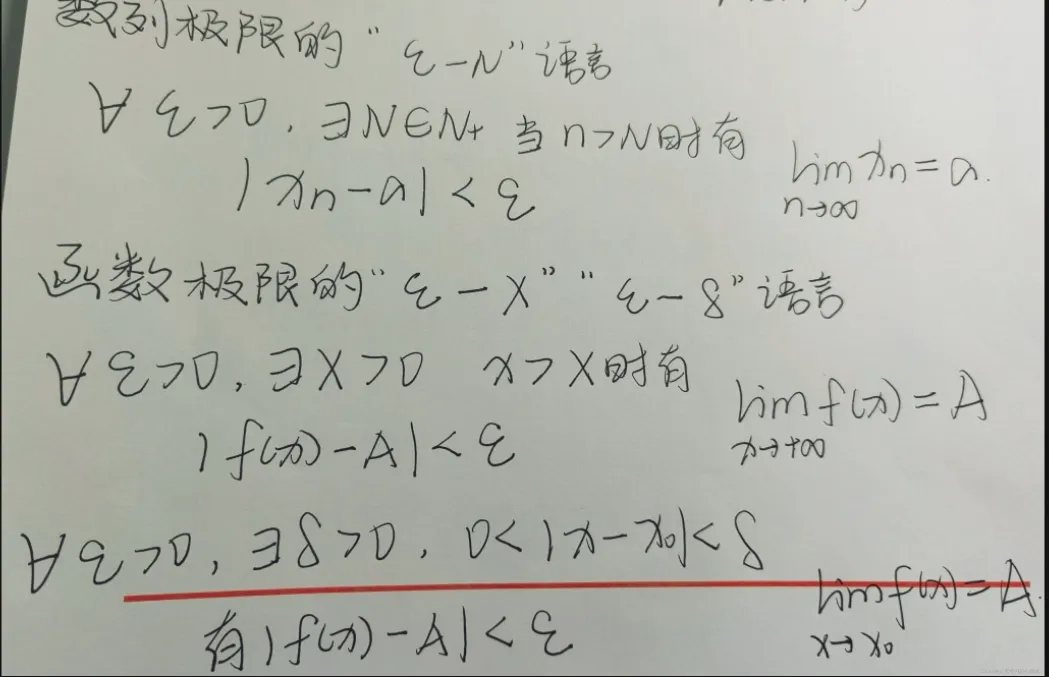 数列极限的“ε-N”语言
∀ε>0, ∃N∈N+ 当n>N时有
|xn-a|<ε
lim xn=a.
n→∞
函数极限的“ε-X”“ε-δ”语言
∀ε>0, ∃X>0 x>X时有
|f(x)-A|<ε
lim f(x)=A
x→+∞
∀ε>0, ∃δ>0, 0<|x-x0|<δ
有|f(x)-A|<ε
lim f(x)=A.
x→x0